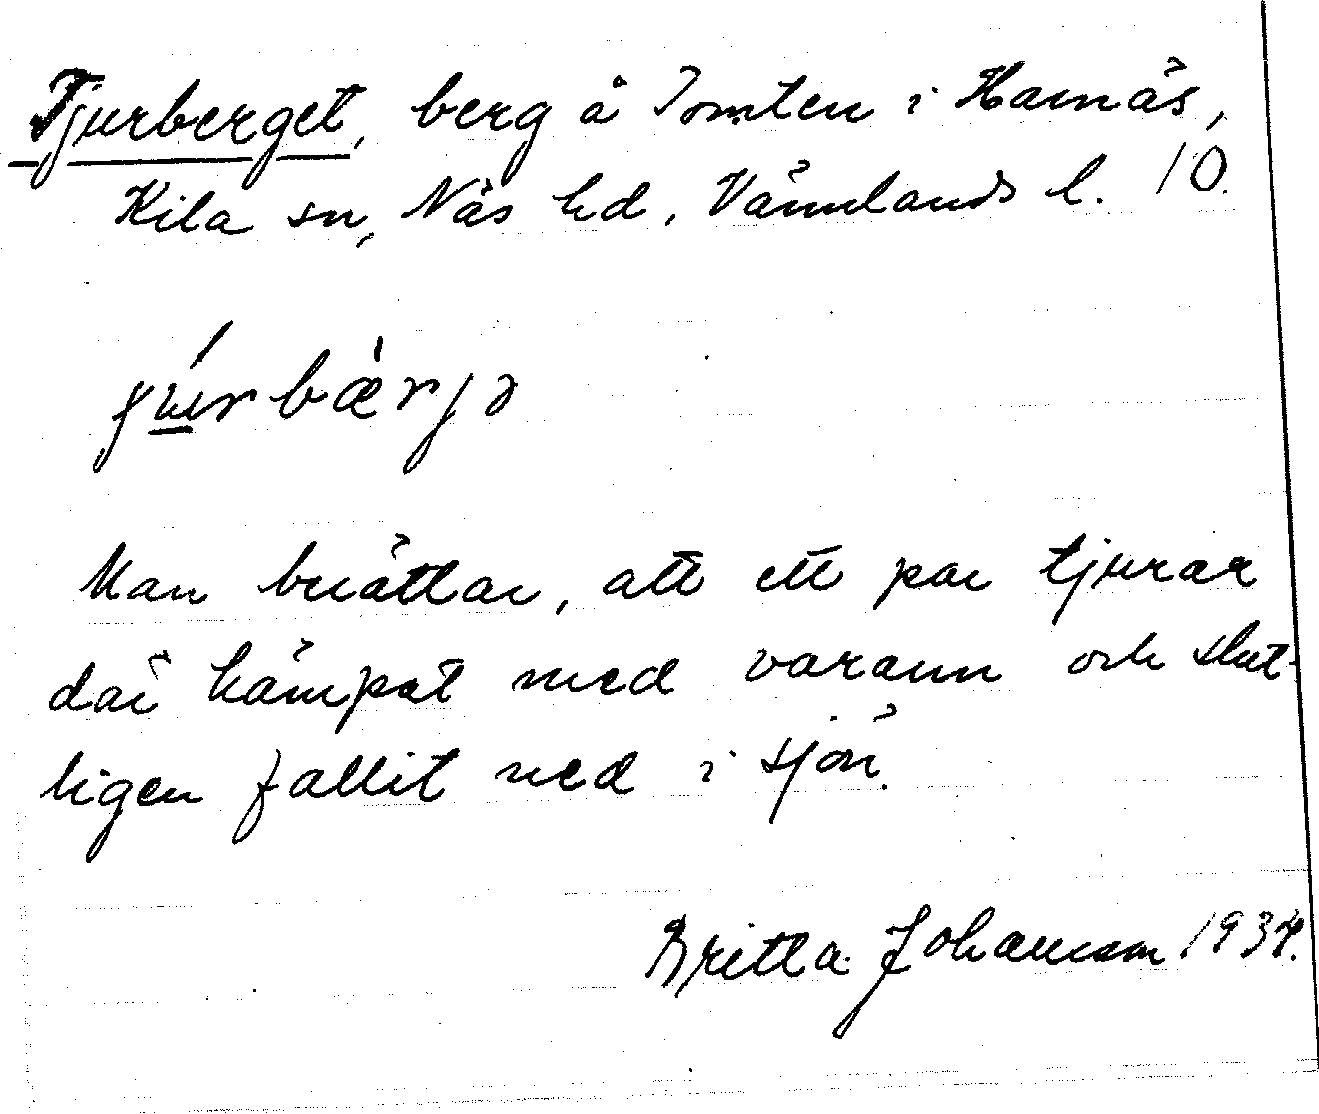 Tjurberget, berg å Tomten i Harnäs,
Kila sn, Näs hd, Värmlands l. 10.
ʃu̲rbærjə
Man berättar, att ett par tjurar
där kämpat med varann och slut-
ligen fallit ned i sjön.
Britta Johansson 1934.